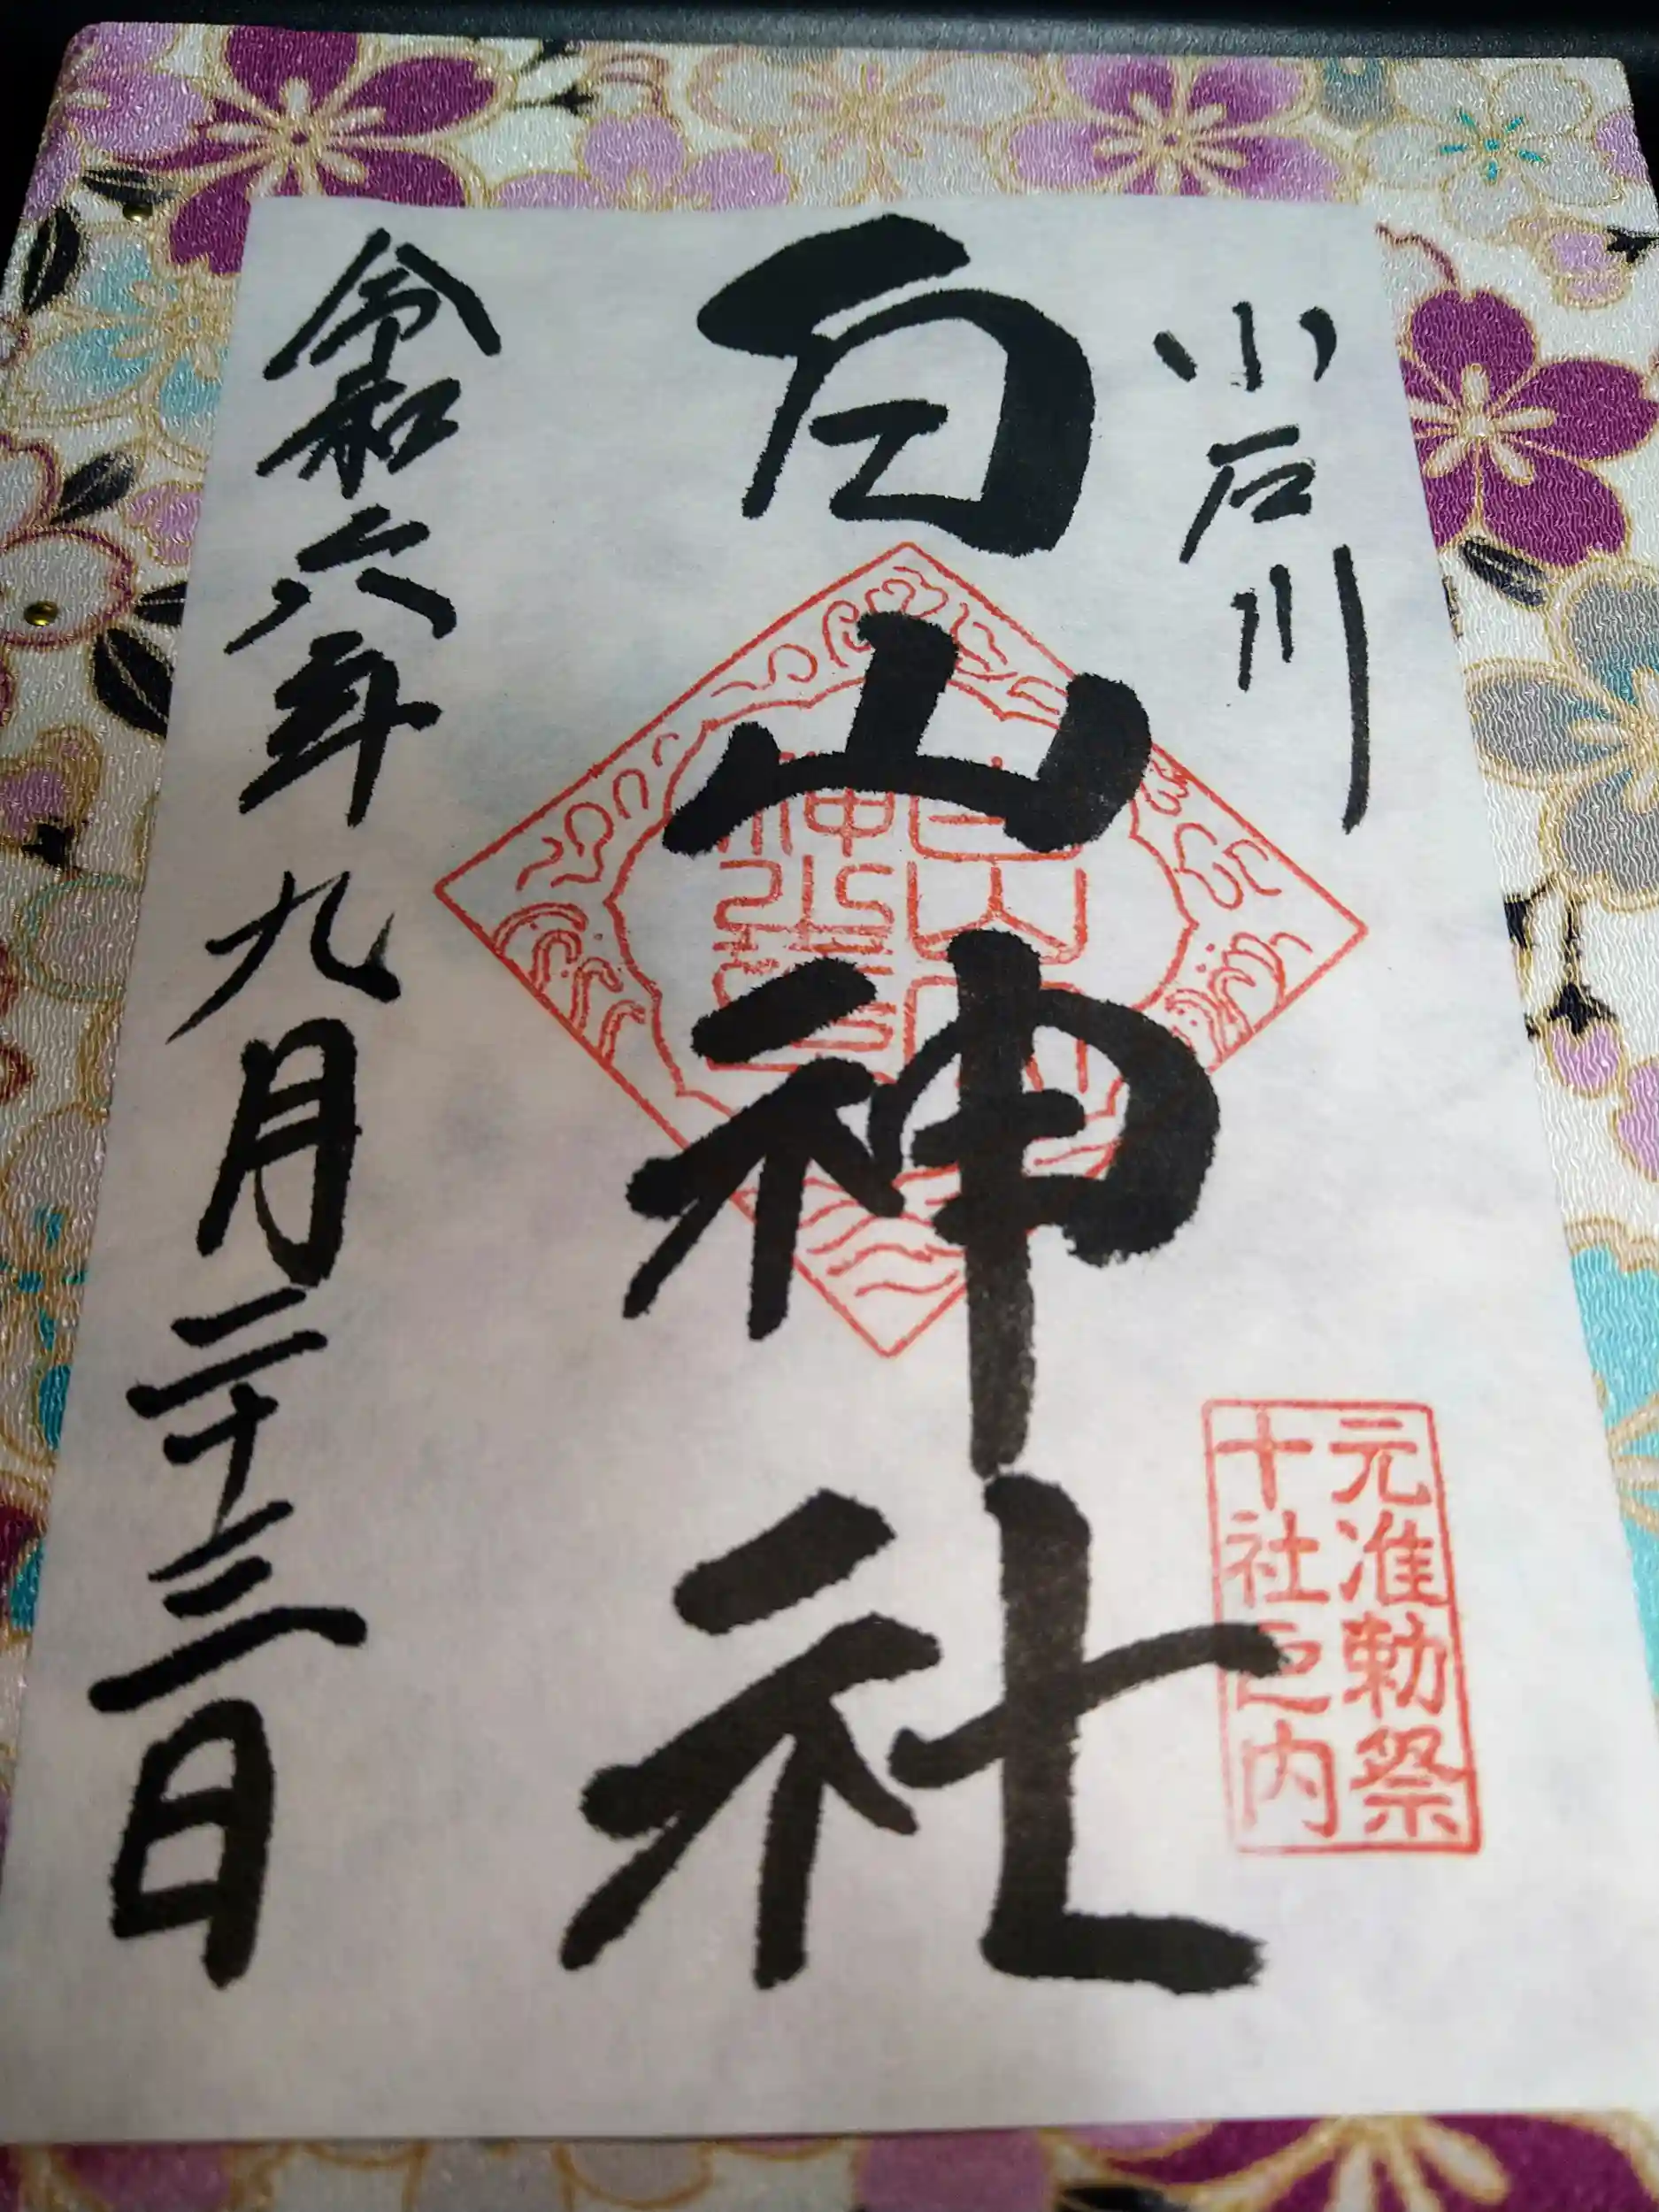 小石川
元准勅祭
十社之内
白山神社
令和六年九月二十三日